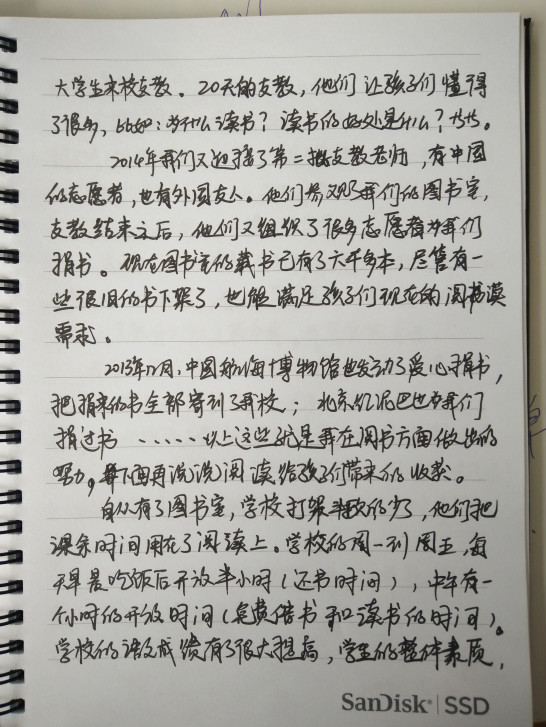 大学生来校支教。20天的支教，他们让孩子们懂得
了很多，比如：为什么读书？读书的好处是什么？等等。
2014年我们又迎接了第二批支教老师，有中国
的志愿者，也有外国友人。他们参观了我们的图书室，
支教结束之后，他们又组织了很多志愿者为我们
捐书。现在图书室的藏书已有了六千多本，尽管有一
些很旧的书下架了，也能满足孩子们现在的阅书读
需求。
2015年12月，中国航海博物馆也发动了爱心捐书，
把捐来的书全部寄到了我校；北京红泥巴也为我们
捐过书 ······以上这些就是我在图书方面做出的
努力，我下面再说说阅读给孩子们带来的收获。
自从有了图书室，学校打架斗殴的少了，他们把
课余时间用在了阅读上。学校的周一到周五，每
天早晨吃饭后开放半小时（还书时间），中午有一
个小时的开放时间（免费借书和读书的时间）。
学校的语文成绩有了很大提高，学生的整体素质，
SanDisk SSD